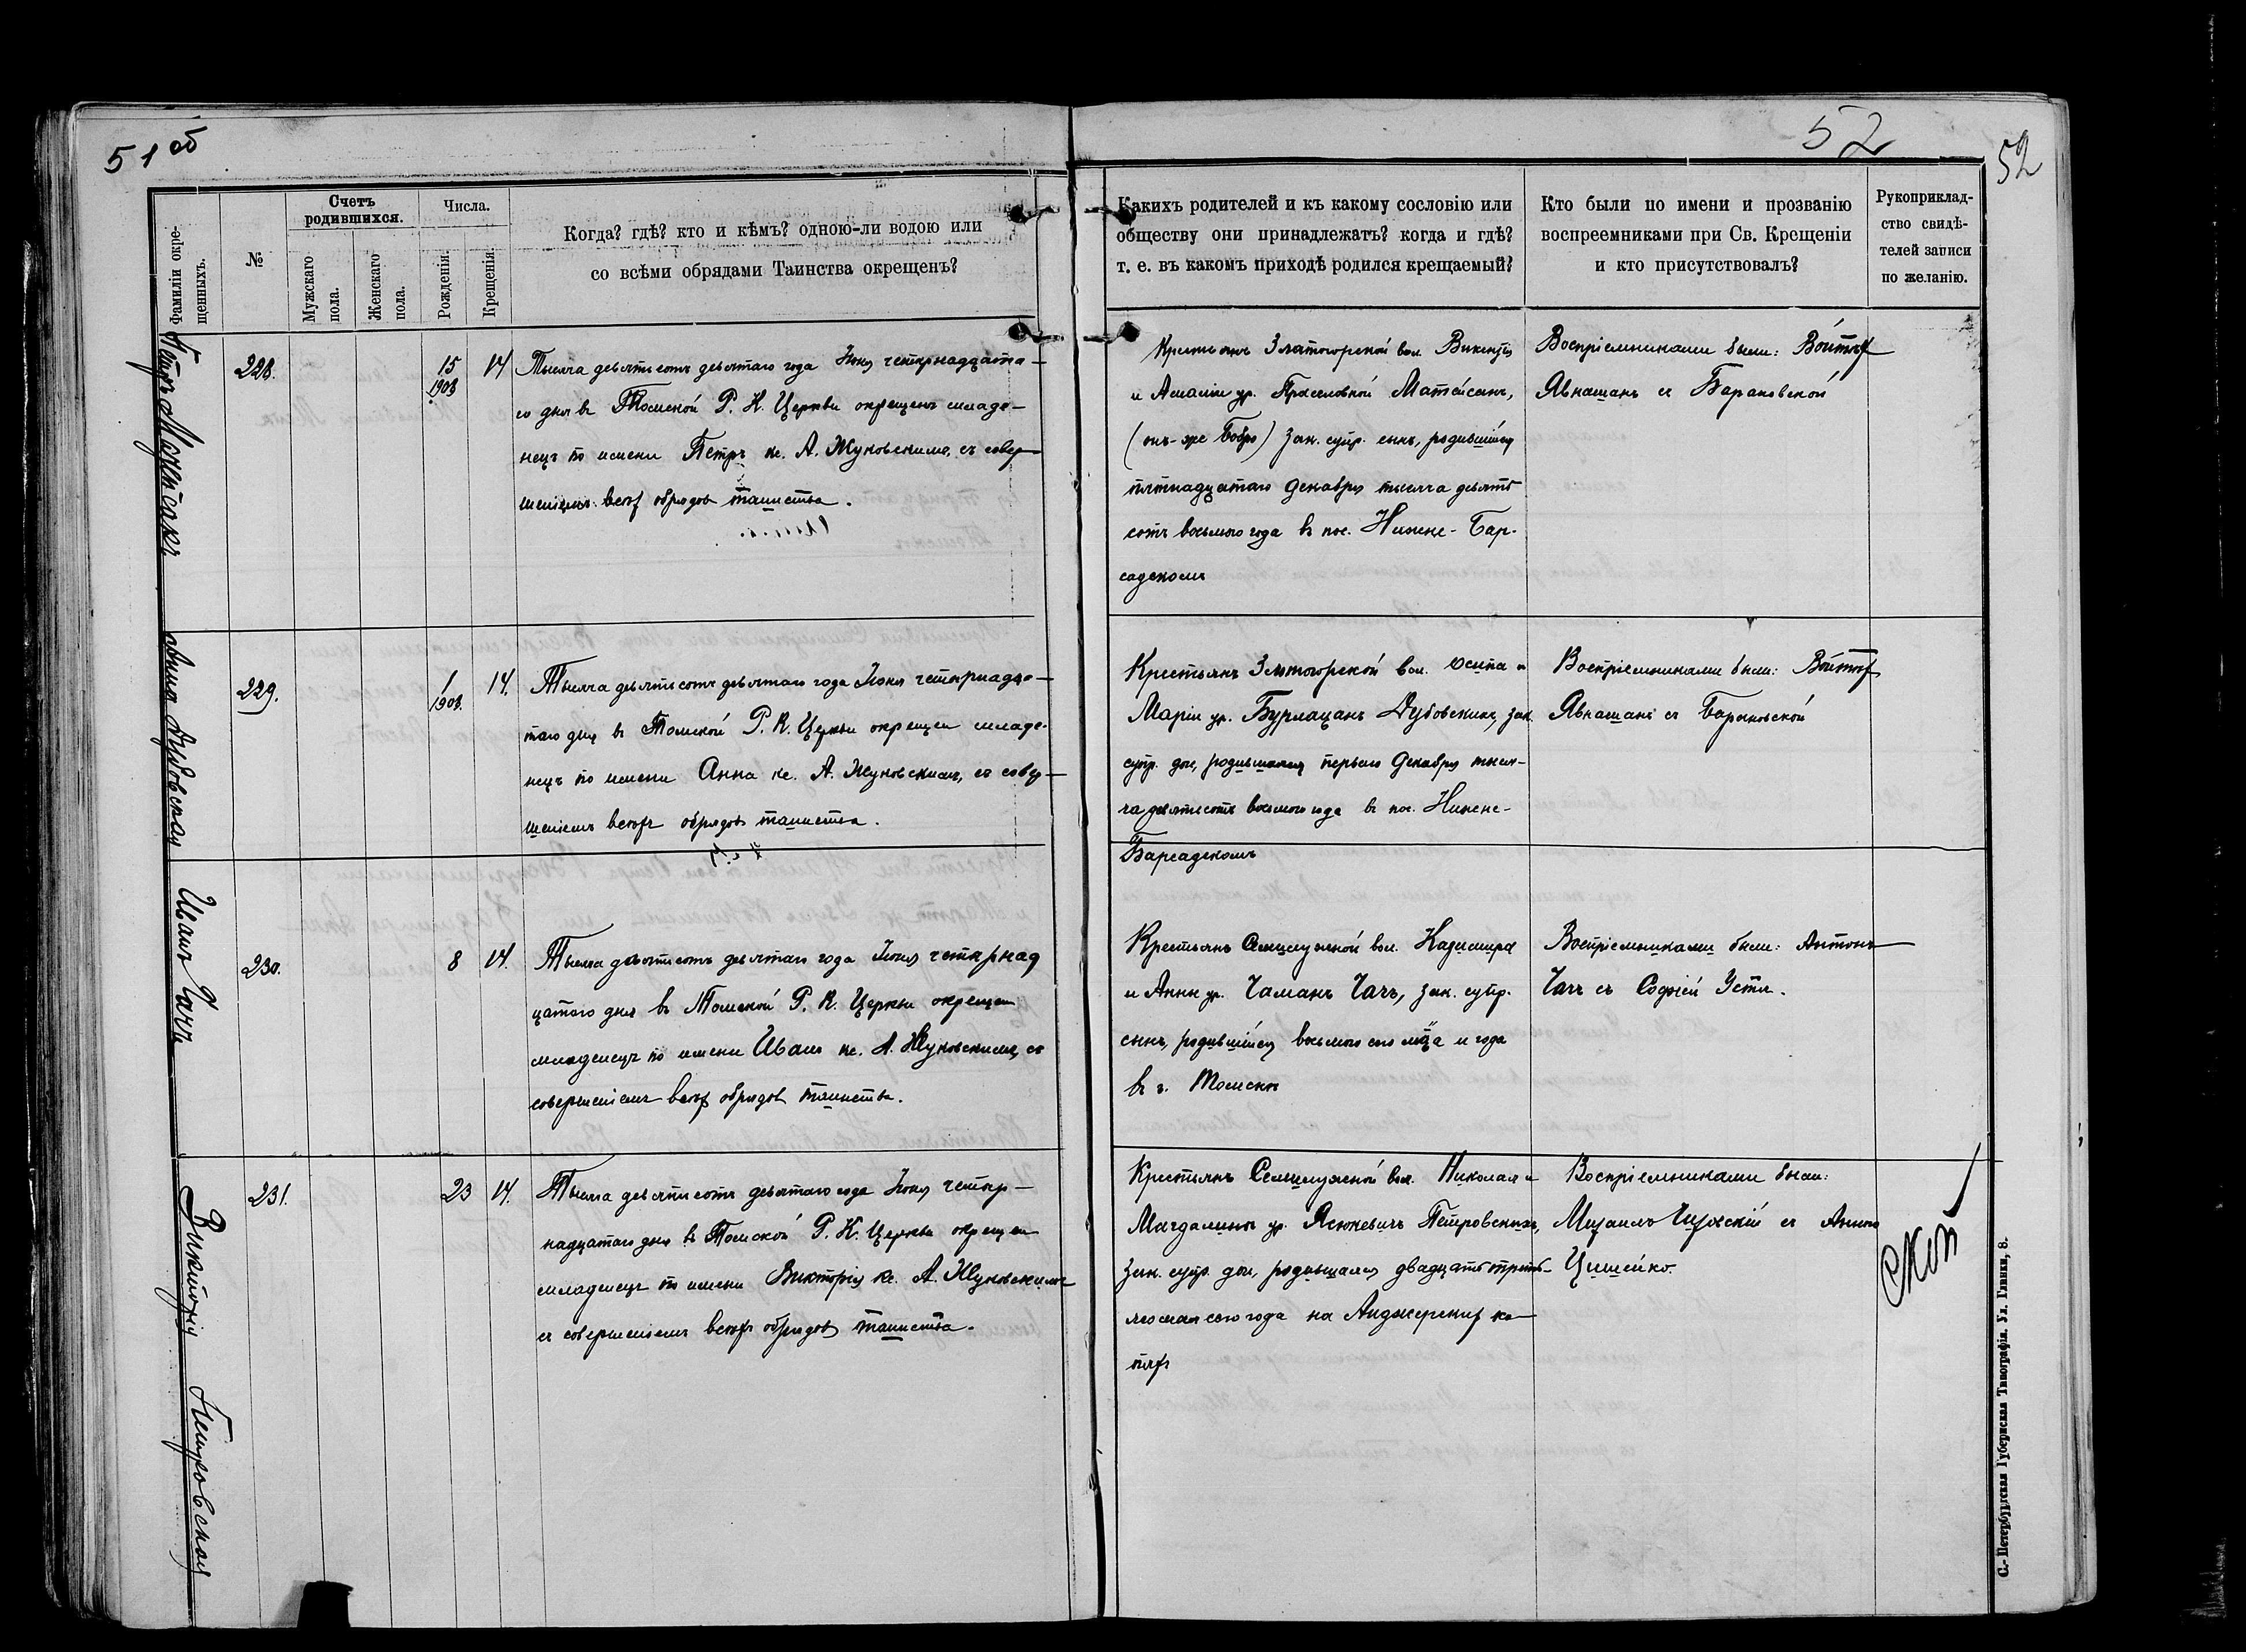 51 об
52
52
Фамиліи окре-
щенныхъ.
№
Счетъ
родившихся.
Мужскаго
пола.
Женскаго
пола.
Числа.
Рожденія.
Крещенія
Когда? гдѣ? кто и кѣмъ? одною-ли водою или
со всѣми обрядами Таинства окрещенъ?
Какихъ родителей и къ какому сословію или
обществу они принадлежатъ? когда и гдѣ?
т. е. въ какомъ приходѣ родился крещаемый?
Кто были по имени и прозванію
воспреемниками при Св. Крещеніи
и кто присутствовалъ?
Рукоприклад-
ство свидѣ-
телей записи
по желанію.
Петръ
228.
15
1908
14
Тысяча девятьсотъ девятаго года Іюня четырнадцата-
го дня въ Томской Р. К. Церкви окрещенъ младе-
нецъ по имени Петръ кс. А. Жуковскимъ, съ совер-
шеніемъ всѣхъ обрядовъ таинства.
Крестьянъ Златогорской вол. Викентія
и Амаліи ур.
(онъ-же Бобро) зак. супр. сынъ, родившійся
пятнадцатаго Декабря тысяча девять
сотъ восьмого года въ пос. Нижне-Бар-
садскомъ
Воспріемниками были: Войтѣх
Явнашанъ съ Барановской
Анна Дубовская
229.
1
1908.
14.
Тысяча девятьсотъ девятаго года Іюня четырнадца-
таго дня въ Томской Р. К. Церкви окрещен младе-
нецъ по имени Анна кс. А. Жуковскимъ, съ совер-
шеніемъ всѣхъ обрядовъ таинства.
Крестьянъ Златогорской вол. Осипа и
Маріи ур. Бурлацанъ Дубовскихъ, зак.
супр. дочь, родившаяся перваго Декабря тыся-
ча девятьсотъ восьмого года въ пос. Нижне-
Барсадскомъ
Воспріемниками были: Войтѣх
Явнашанъ съ Барановской
Иванъ Чачъ
230.
8
14.
Тысяча девятьсотъ девятаго года Іюня четырнад
цатаго дня въ Томской Р. К. Церкви окрещен
младенецъ по имени Иванъ кс. А. Жуковскимъ, съ
совершеніемъ всѣхъ обрядовъ таинства.
Крестьянъ Семилужной вол. Казимира
и Анны ур. Чаманъ Чачъ, зак. супр.
сынъ, родившійся восьмого сего м-ца и года
въ г. Томскѣ
Воспріемниками были: Антонъ
Чачъ съ Софіей
Викторія Петровская
231.
23
14.
Тысяча девятьсотъ девятаго года Іюня четыр-
надцатаго дня въ Томской Р. К. Церкви окрещен
младенецъ по имени Викторія кс. А. Жуковскимъ
съ совершеніемъ всѣхъ обрядовъ таинства.
Крестьянъ Семилужной вол. Николая и
Магдалины ур. Ясюкевичъ Петровскихъ,
зак. супр. дочь, родившаяся двадцать треть-
яго мая сего года на Анджерскихъ ко-
пяхъ
Воспріемниками были:
Михаилъ съ Анною
С.-Петербургская Губернская Типографія. Ул. Глинки, 8.